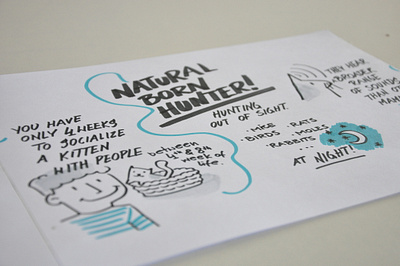 NATURAL
BORN
HUNTER!
HUNTING
OUT OF SIGHT.
· MICE · RATS
· BIRDS · MOLES
· RABBITS ...
...
AT NIGHT!
YOU HAVE
ONLY 4 WEEKS
TO SOCIALIZE
A KITTEN
WITH PEOPLE
between
4th & 8th
week of
life.
THEY HEAR
BROADER
RANGE
OF SOUNDS
THAN